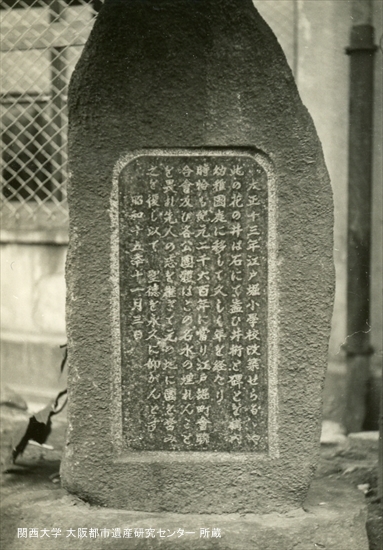 大正十三年江戸堀小學校改築せらるゝや
此の花の井は石にて蓋ひ井桁と碑とを構へ
幼稚園庭に移して久しく年を経たり
時恰も紀元二千六百年に當り江戸堀町會聯
合會及び各公園はこの名水の埋れんこと
を畏れ先人の志を継ぎて元の地に園を営み
之を復し以て聖徳を永久に仰がんとす
昭和十五年十一月三日
関西大学 大阪都市遺産研究センター 所蔵